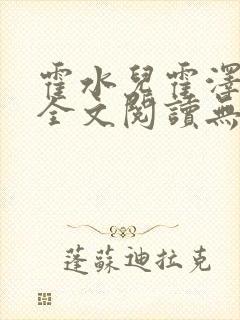 霍水兒霍澤
全文閱讀無
蓬蘇迪拉克